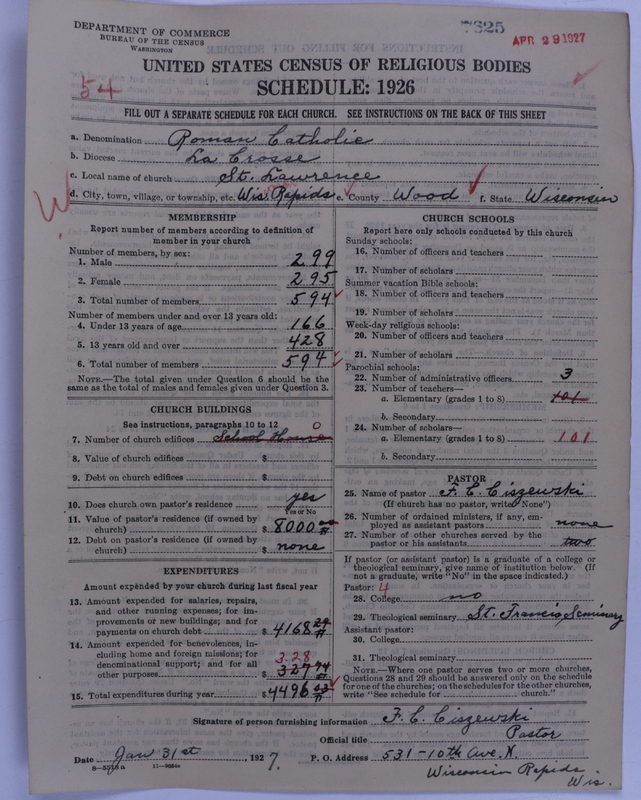 DEPARTMENT OF COMMERCE
BUREAU OF THE CENSUS
WASHINGTON
7625
APR 29 1927
UNITED STATES CENSUS OF RELIGIOUS BODIES
SCHEDULE: 1926
54
FILL OUT A SEPARATE SCHEDULE FOR EACH CHURCH. SEE INSTRUCTIONS ON THE BACK OF THIS SHEET
a. Denomination Roman Catholic
b. Diocese La Crosse
c. Local name of church St. Lawrence
d. City, town, village, or township, etc. Wis. Rapids e. County Wood f. State Wisconsin
MEMBERSHIP
Report number of members according to definition of
member in your church
Number of members, by sex:
1. Male 299
2. Female 295
3. Total number of members 594
Number of members under and over 13 years old:
4. Under 13 years of age 166
5. 13 years old and over 428
6. Total number of members 594
NOTE.—The total given under Question 6 should be
the same as the total of males and females given under Question 3.
CHURCH BUILDINGS
See instructions, paragraphs 10 to 12
0
7. Number of church edifices School House
8. Value of church edifices $
9. Debt on church edifices $
10. Does church own pastor's residence yes
Yes or No
11. Value of pastor's residence (if owned by
church) $ 8000
12. Debt on pastor's residence (if owned by
church) $ none
EXPENDITURES
Amount expended by your church during last fiscal year
13. Amount expended for salaries, repairs,
and other running expenses; for im-
provements or new buildings; and for
payments on church debt $ 4168 29
14. Amount expended for benevolences, in-
cluding home and foreign missions; for
denominational support; and for all 328
other purposes $ 327 74
15. Total expenditures during year $ 4496 03
CHURCH SCHOOLS
Report here only schools conducted by this church
Sunday schools:
16. Number of officers and teachers
17. Number of scholars
Summer vacation Bible schools:
18. Number of officers and teachers
19. Number of scholars
Week-day religious schools:
20. Number of officers and teachers
21. Number of scholars
Parochial schools:
22. Number of administrative officers 3
23. Number of teachers—
a. Elementary (grades 1 to 8) 101
b. Secondary
24. Number of scholars—
a. Elementary (grades 1 to 8) 101
b. Secondary
PASTOR
25. Name of pastor F. C. Ciszewski
(If church has no pastor, write "None")
26. Number of ordained ministers, if any, em-
ployed as assistant pastors none
27. Number of other churches served by the
pastor or his assistants two
If pastor (or assistant pastor) is a graduate of a college or
theological seminary, give name of institution below. (If
not a graduate, write "No" in the space indicated.)
Pastor: 4
28. College no
29. Theological seminary St. Francis Seminary
Assistant pastor:
30. College
31. Theological seminary
NOTE.—Where one pastor serves two or more churches,
Questions 28 and 29 should be answered only on the schedule
for one of the churches; on the schedules for the other churches,
write "See schedule for church."
Signature of person furnishing information F. C. Ciszewski
Official title Pastor
Date Jan 31st 1927. P. O. Address 531-10th Ave. N.
Wisconsin Rapids
Wis.